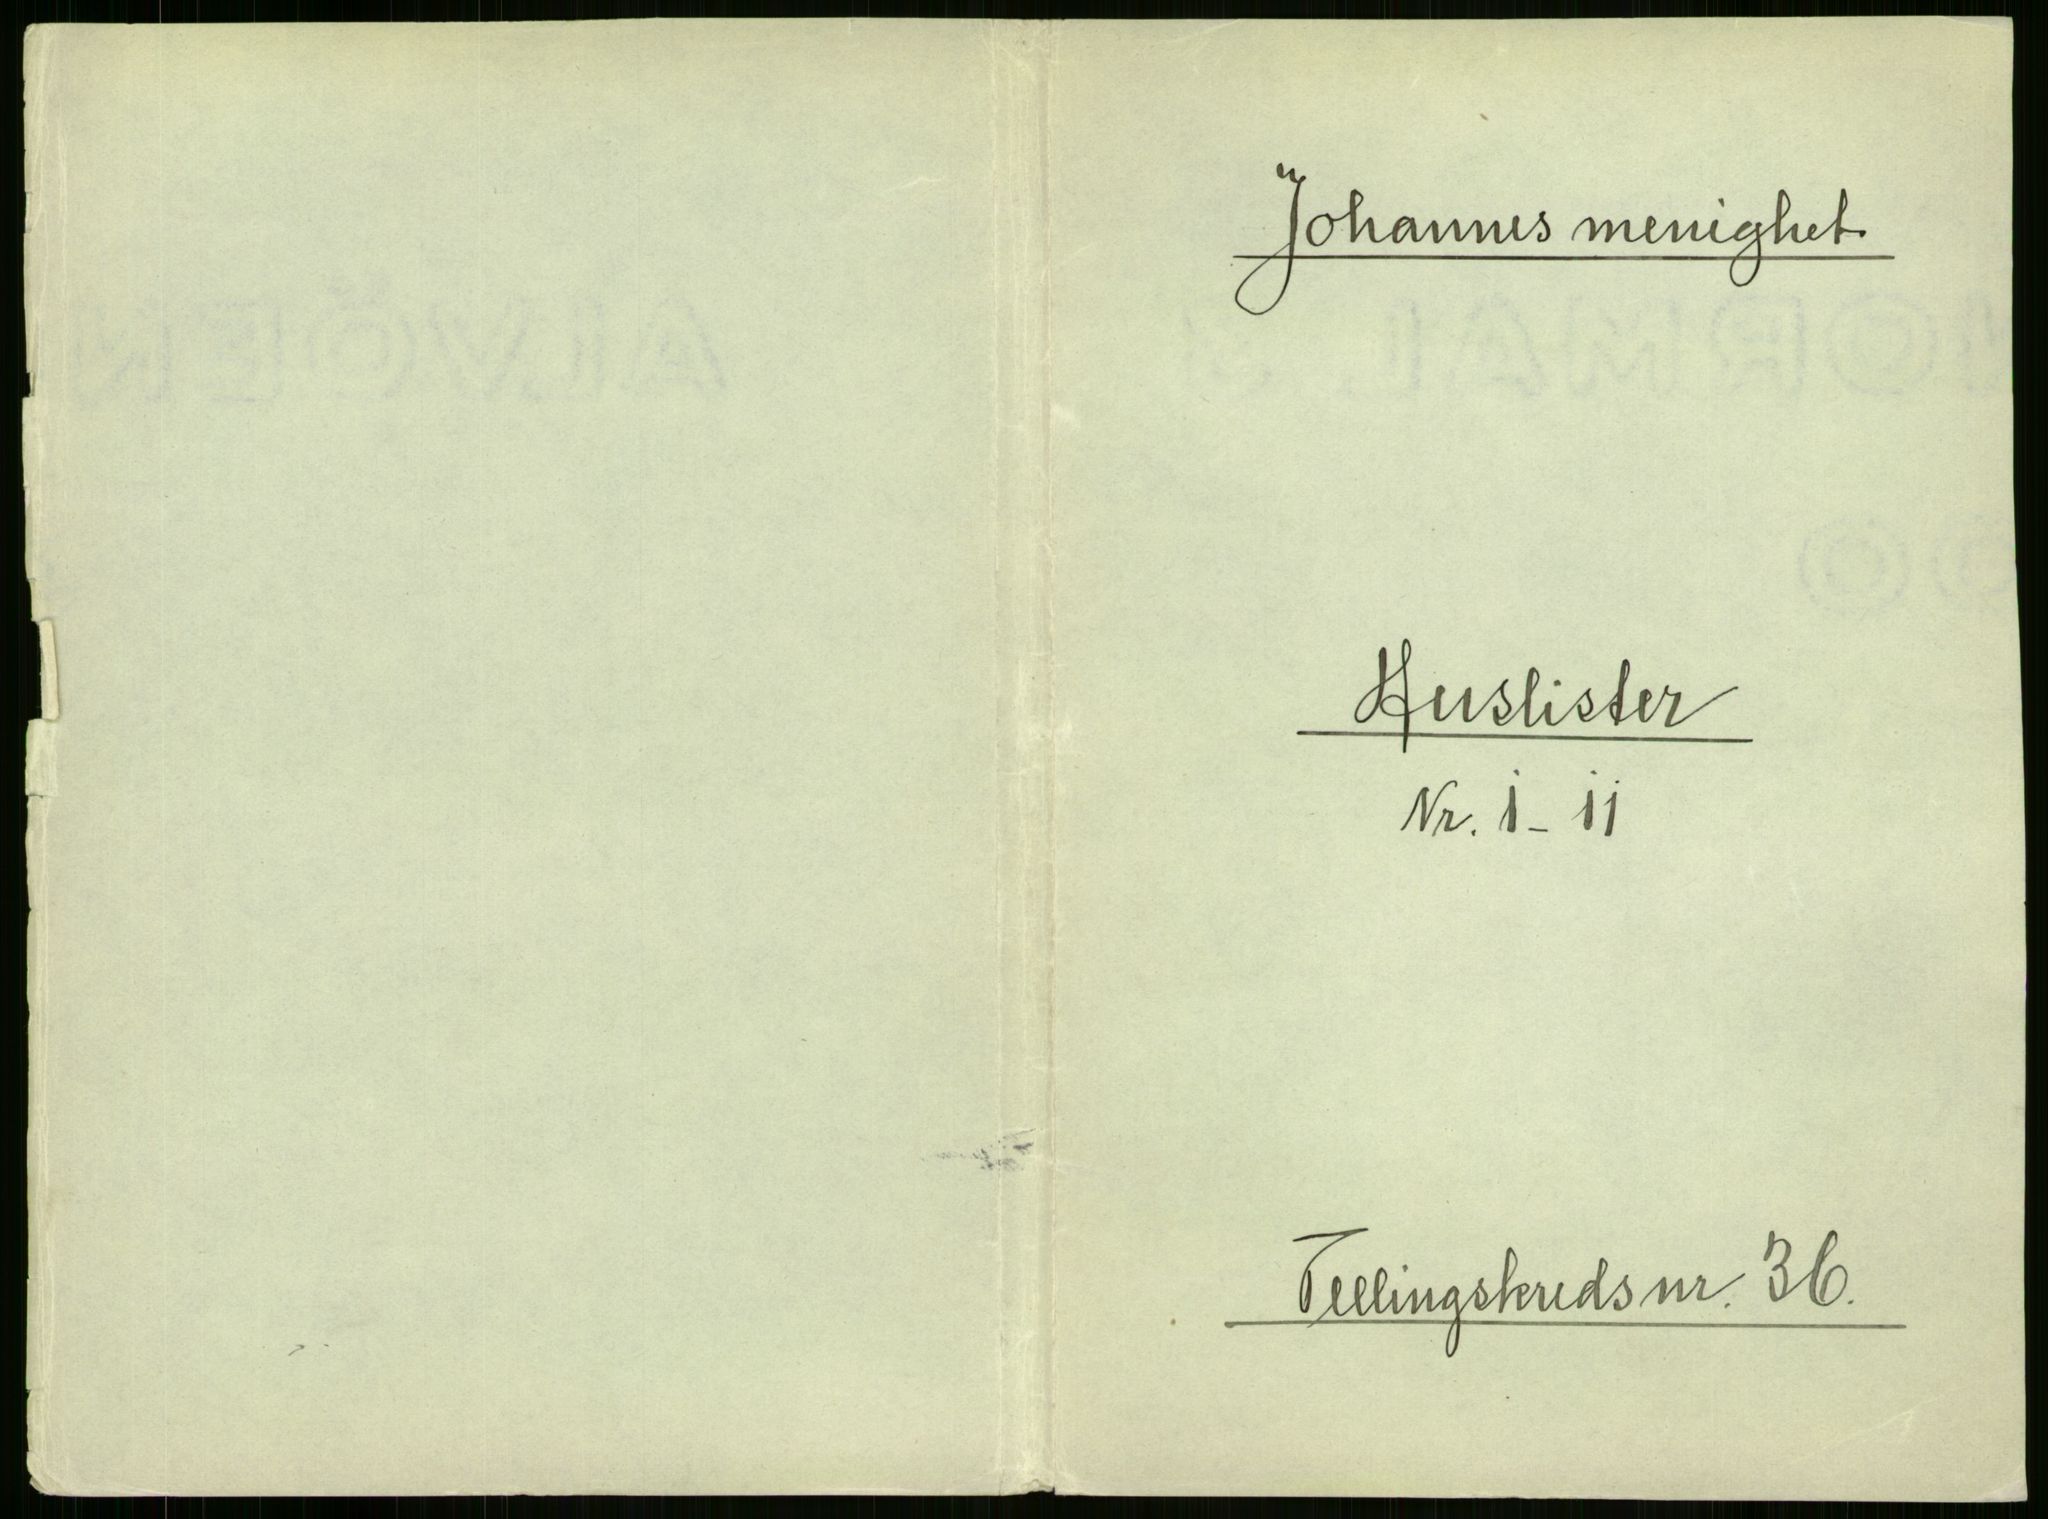 Johannes menighet.
Huslister
Nr. 1 - 11
Tellingskreds nr. 36.